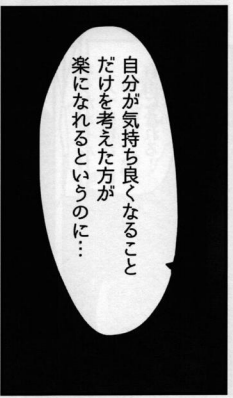 自分が気持ち良くなること
だけを考えた方が
楽になれるというのに…